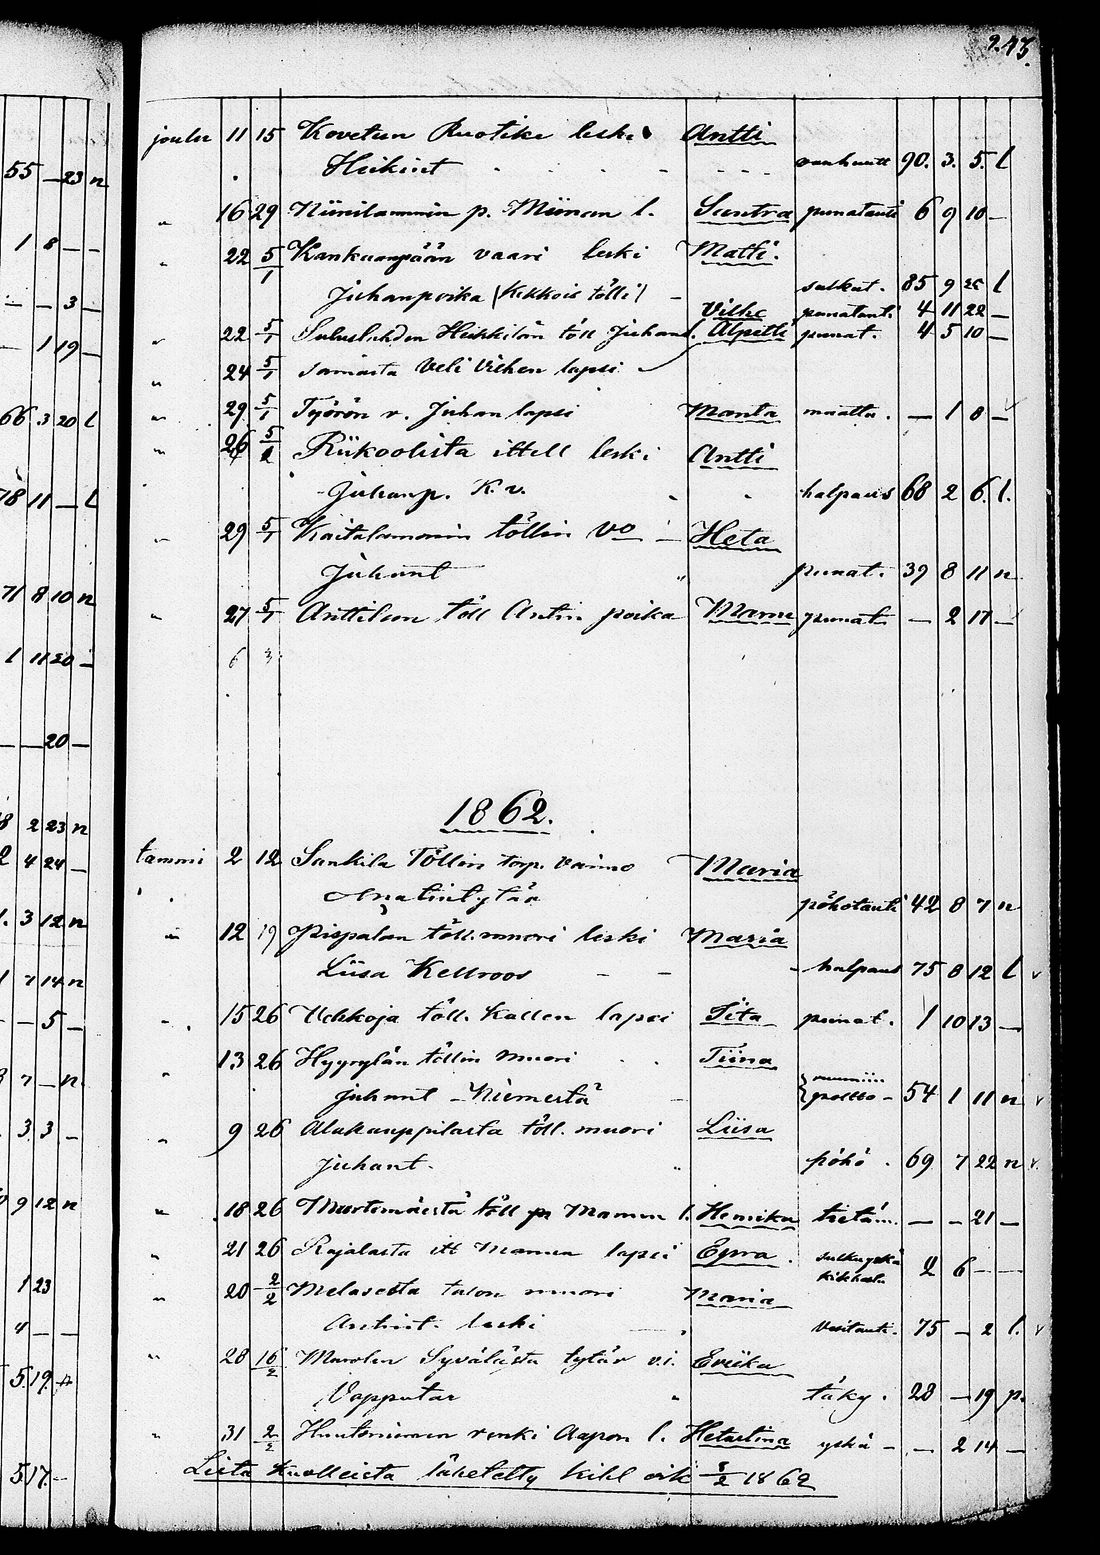 243.
joulu 11 15 Kovetun Ruotike leski Antti
Heikint vanhuutt 90. 3. 5. l
" 16 29 Niinilammin p. Miinan l. Santra punatauti 6 9 10 —
" 22 5/1 Kankaanpään vaari leski Matti.
Juhanpoika (Kekkois tölli) — salkat. 85 9 25 l
Vilhe punatauti 4 11 22 —
" 22 5/1 Heikkilän töll Juhan l. Alpetti punat. 4 5 10 —
" 24 5/1 samasta Veli Vilhen lapsi
" 29 5/1 Työrön v. Juhan lapsi Manta maatta. — 1 8 —
" 26 5/1 Riikoolista ittell leski Antti
Juhanp. K. v. halpaus 68 2 6. l.
" 29 5/1 Kaitalammin töllin vo Heta
Juhant " punat. 39 8 11 n
" 27 5/1 Anttilan töll Antin poika Manu punat. — 2 17 —
6 3
1862.
tammi 2 12 Sankila Töllin torp. vaimo Maria
Matintytär pöhötauti 42 8 7 n
" 12 19 Pispalan töll. muori leski Maria
Liisa Kellroos — — halpaus 75 8 12 l
" 15 26 Uckkoja töll. Kallen lapsi Iita punat. 1 10 13 —
" 13 26 Hyyrylän töllin muori Tiina
Juhant — Niemestä — ruumiin poltto — 54 1 11 n
" 9 26 Alakauppilasta töll. muori Liisa
Juhant. " pöhö. 69 7 22 n
" 18 26 Murtomäestä töll Mannun l. Hemika tietä... — — 21 —
" 21 26 Rajalasta itt Mannun lapsi Eewa. 2 6 — —
" 20 2/2 Melasesta talon muori Maria
Antint. leski " Vesitauti. 75 — 2 l.
" 28 16/2 Syvälästä tytär v.i. Eriika
Vapputar " täky. 28 — 19 p.
" 31 2/2 Huutoniemen renki Aapon l. Hetastina yskä — — 2 14 —
Lista kuolleista lähetetty Kihl 5/2 1862
55 — 23 n
1 8 — —
— — 3 —
— 1 19 —
66 3 20 l
78 11 — l
71 8 10 n
1 11 20 —
— — 20 —
8 2 23 n
2 4 24 —
1. 3 12 n
1 7 14 n
— — 5 —
3 7 — n
3 3 —
9 12 n
1 23
4 — —
5 19.
5 17. —